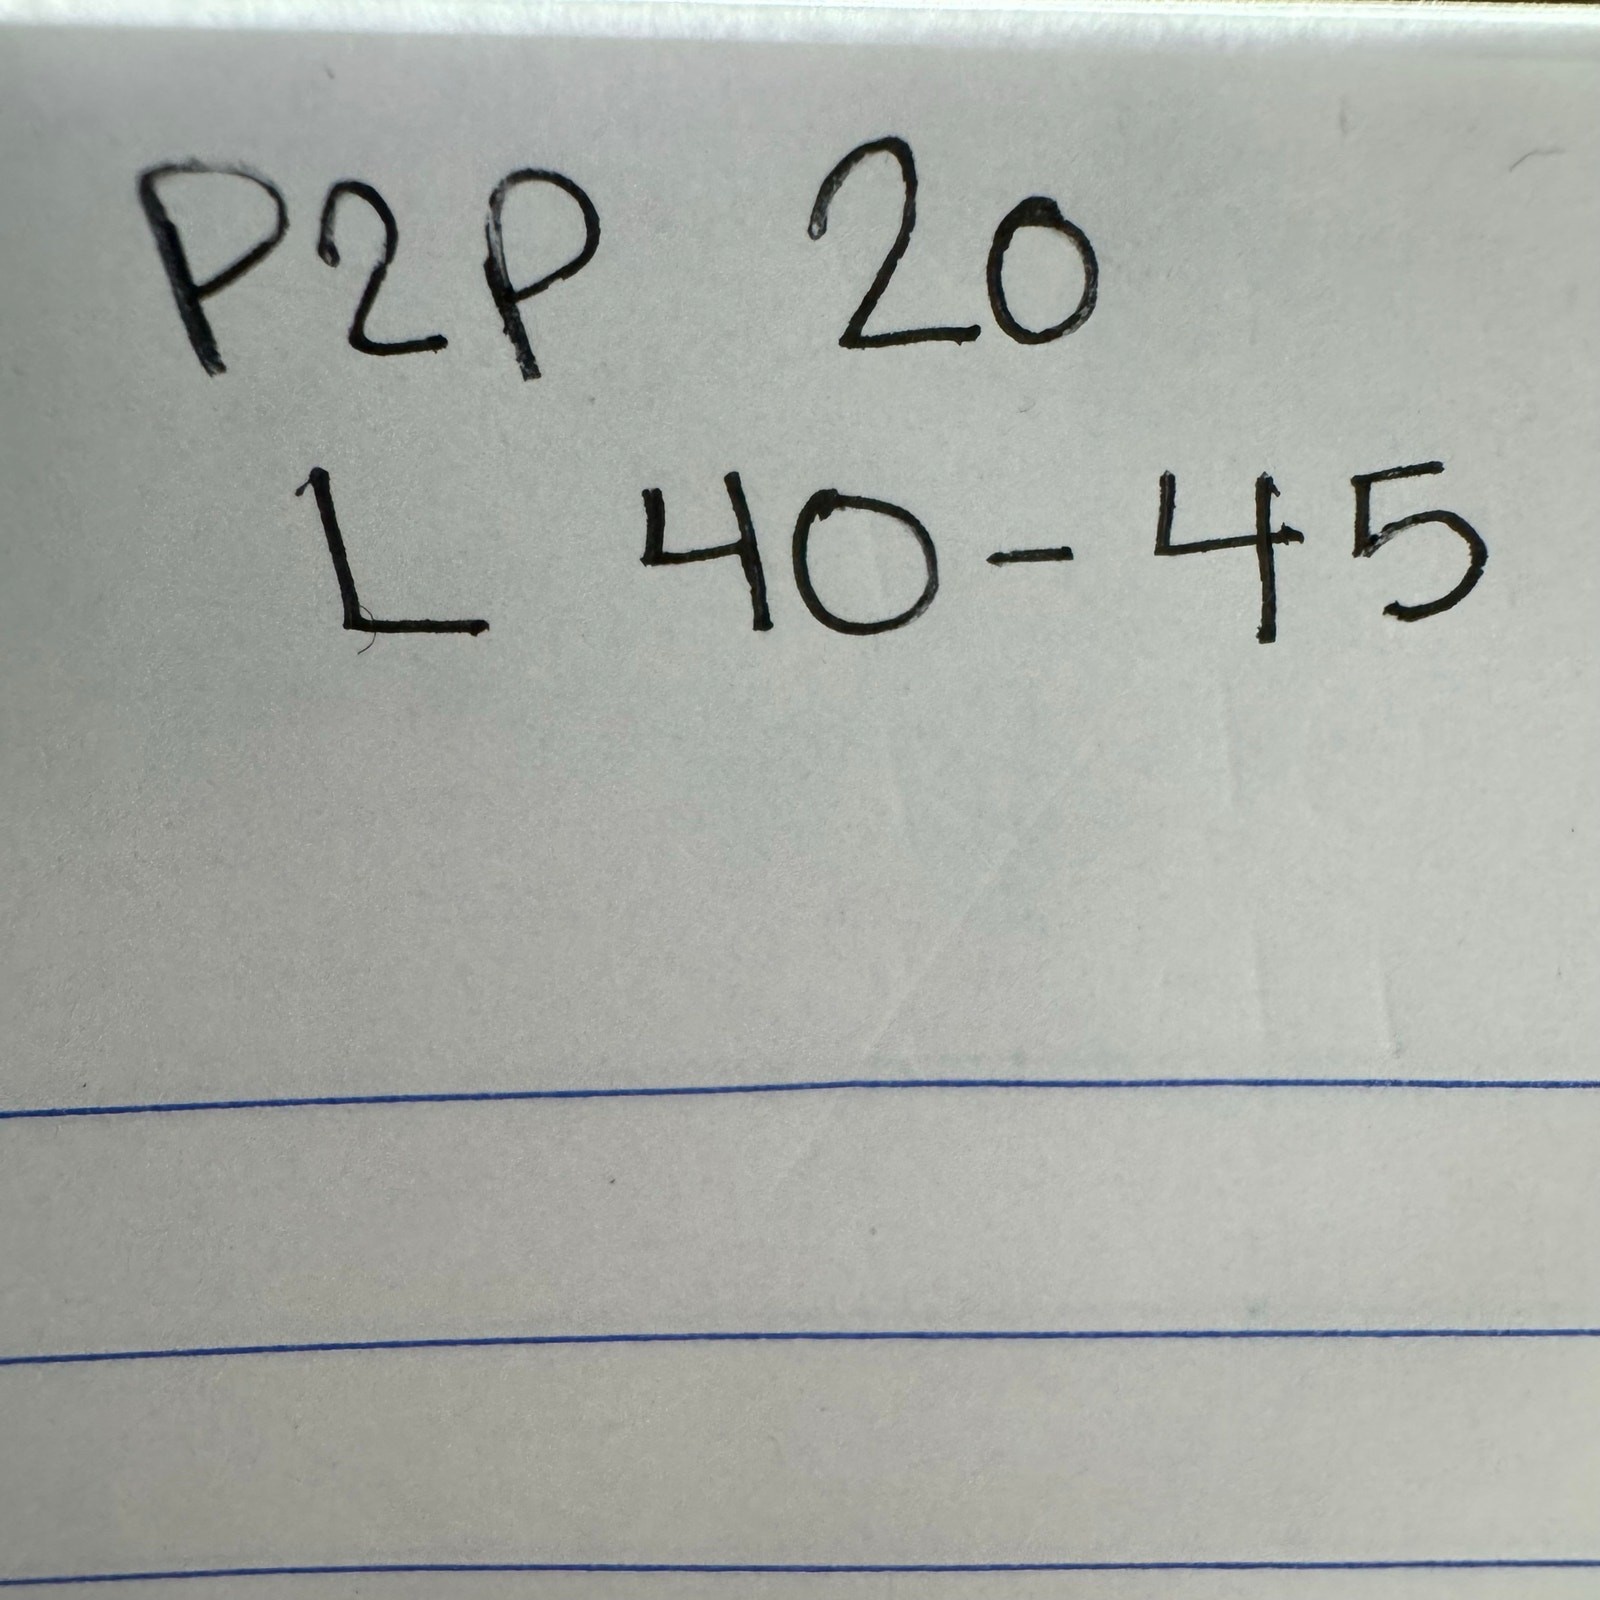 P2P 20
L 40-45